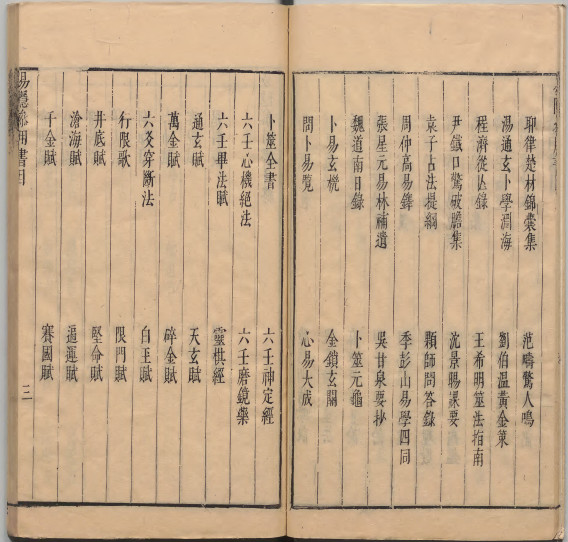 耶律楚材錦囊集
范疇驚人鳴
湯通玄卜學淵海
劉伯溫黃金策
程濟從亾錄
王希明筮法指南
尹鐵口驚破膽集
沈景暘課要
袁子占法提綱
顆師問答錄
周仲高易鐸
季彭山易學四同
張星元易林補遺
吳甘泉要抄
魏道南目錄
卜筮元龜
卜易玄機
金鎖玄關
問卜易覽
心易大成
卜筮全書
六壬神定經
六壬心機絕法
六壬磨鏡藥
六壬畢法賦
靈棋經
通玄賦
天玄賦
萬金賦
碎金賦
六爻穿斷法
白玉賦
行限歌
限門賦
井底賦
堅命賦
滄海賦
逼運賦
千金賦
寶國賦
三